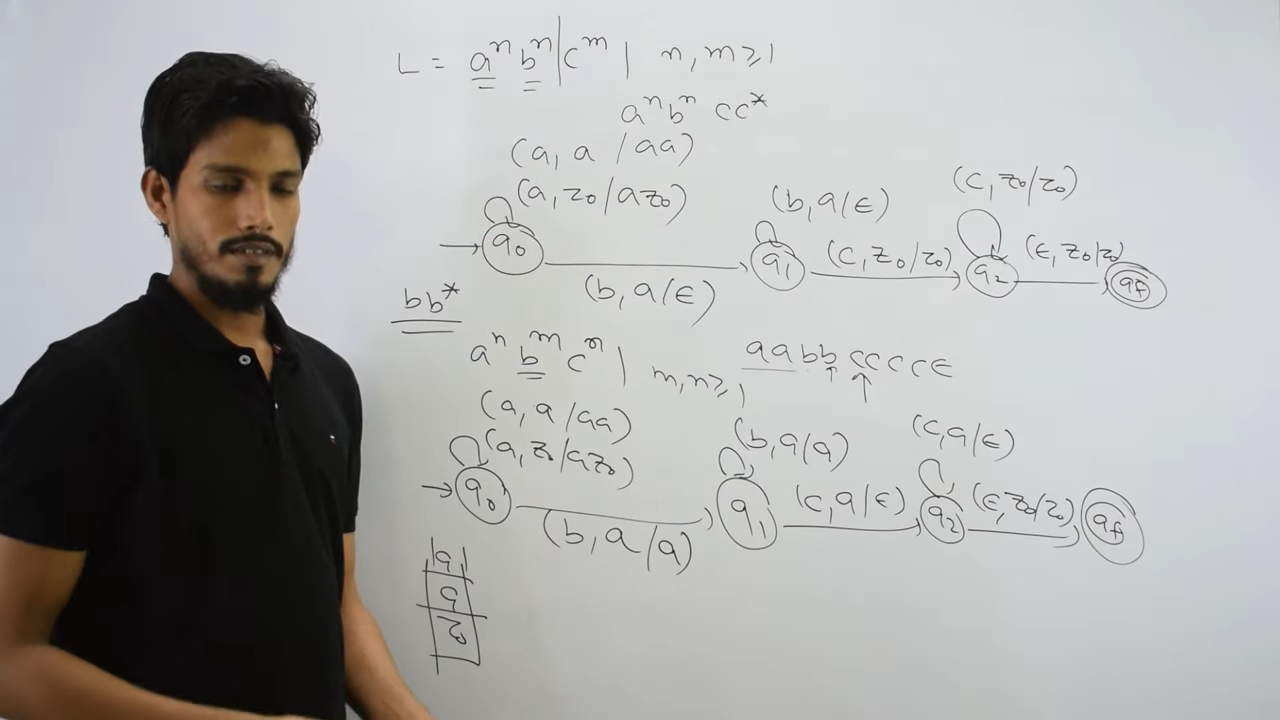 L = aⁿ bⁿ | cᵐ | n, m ≥ 1
aⁿbⁿ cc*
(a, a / aa)
(a, z₀ / az₀)
(b, a/ε)
(c, z₀/z₀)
q₀
q₁
(c, z₀/z₀)
q₂
(ε, z₀/z₀)
qf
(b, a/ε)
bb*
aⁿ bᵐ cⁿ | m, n ≥ 1
aabbccccε
(a, a / aa)
(a, z₀/az₀)
(b, a/a)
(c, a/ε)
q₀
q₁
(c, a/ε)
q₂
(ε, z₀/z₀)
qf
(b, a/a)
a
a
z₀